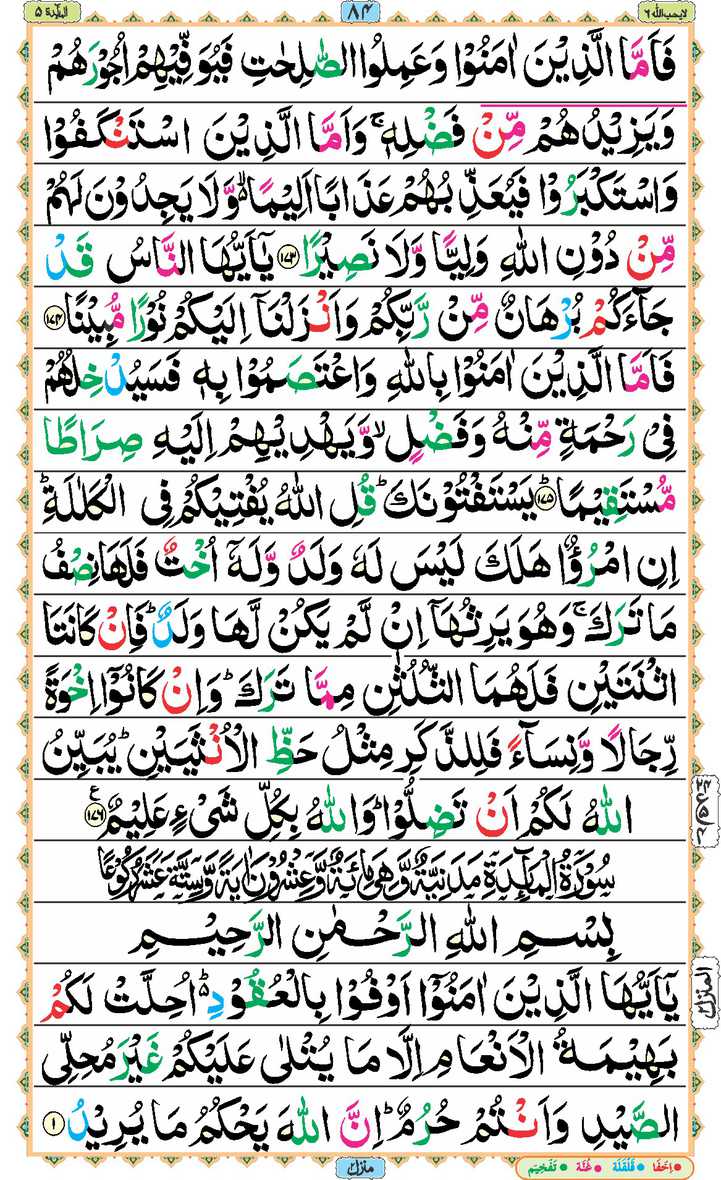 لایحب الله ٦
٨٤
المآئدة ٥
فَاَمَّا الَّذِیْنَ اٰمَنُوْا وَعَمِلُوا الصّٰلِحٰتِ فَیُوَفِّیْهِمْ اُجُوْرَهُمْ
وَیَزِیْدُهُمْ مِّنْ فَضْلِهٖ ۚ وَاَمَّا الَّذِیْنَ اسْتَنْكَفُوْا
وَاسْتَكْبَرُوْا فَیُعَذِّبُهُمْ عَذَابًا اَلِیْمًا ۙ وَّلَا یَجِدُوْنَ لَهُمْ
مِّنْ دُوْنِ اللّٰهِ وَلِیًّا وَّلَا نَصِیْرًا ﴿۱۷۳﴾ یٰۤاَیُّهَا النَّاسُ قَدْ
جَآءَكُمْ بُرْهَانٌ مِّنْ رَّبِّكُمْ وَاَنْزَلْنَاۤ اِلَیْكُمْ نُوْرًا مُّبِیْنًا ﴿۱۷۴﴾
فَاَمَّا الَّذِیْنَ اٰمَنُوْا بِاللّٰهِ وَاعْتَصَمُوْا بِهٖ فَسَیُدْخِلُهُمْ
فِیْ رَحْمَةٍ مِّنْهُ وَفَضْلٍ ۙ وَّیَهْدِیْهِمْ اِلَیْهِ صِرَاطًا
مُّسْتَقِیْمًا ﴿۱۷۵﴾ؕ یَسْتَفْتُوْنَكَ ؕ قُلِ اللّٰهُ یُفْتِیْكُمْ فِی الْكَلٰلَةِ ؕ
اِنِ امْرُؤٌا هَلَكَ لَیْسَ لَهٗ وَلَدٌ وَّلَهٗۤ اُخْتٌ فَلَهَا نِصْفُ
مَا تَرَكَ ۚ وَهُوَ یَرِثُهَاۤ اِنْ لَّمْ یَكُنْ لَّهَا وَلَدٌ ؕ فَاِنْ كَانَتَا
اثْنَتَیْنِ فَلَهُمَا الثُّلُثٰنِ مِمَّا تَرَكَ ؕ وَاِنْ كَانُوْۤا اِخْوَةً
رِّجَالًا وَّنِسَآءً فَلِلذَّكَرِ مِثْلُ حَظِّ الْاُنْثَیَیْنِ ؕ یُبَیِّنُ
اللّٰهُ لَكُمْ اَنْ تَضِلُّوْا ؕ وَاللّٰهُ بِكُلِّ شَیْءٍ عَلِیْمٌ ﴿۱۷۶﴾ ع
سُوْرَةُ الْمَآئِدَةِ مَدَنِیَّةٌ وَّهِیَ مِائَةٌ وَّعِشْرُوْنَ اٰیَةً وَّسِتَّةَ عَشَرَ رُكُوْعًا
بِسْمِ اللّٰهِ الرَّحْمٰنِ الرَّحِیْمِ
یٰۤاَیُّهَا الَّذِیْنَ اٰمَنُوْۤا اَوْفُوْا بِالْعُقُوْدِ ؕ۬ اُحِلَّتْ لَكُمْ
بَهِیْمَةُ الْاَنْعَامِ اِلَّا مَا یُتْلٰی عَلَیْكُمْ غَیْرَ مُحِلِّی
الصَّیْدِ وَاَنْتُمْ حُرُمٌ ؕ اِنَّ اللّٰهَ یَحْكُمُ مَا یُرِیْدُ ﴿۱﴾
المنزل
منزل
اِخْفَا
قَلْقَلَة
غُنَّة
تَفْخِیْم